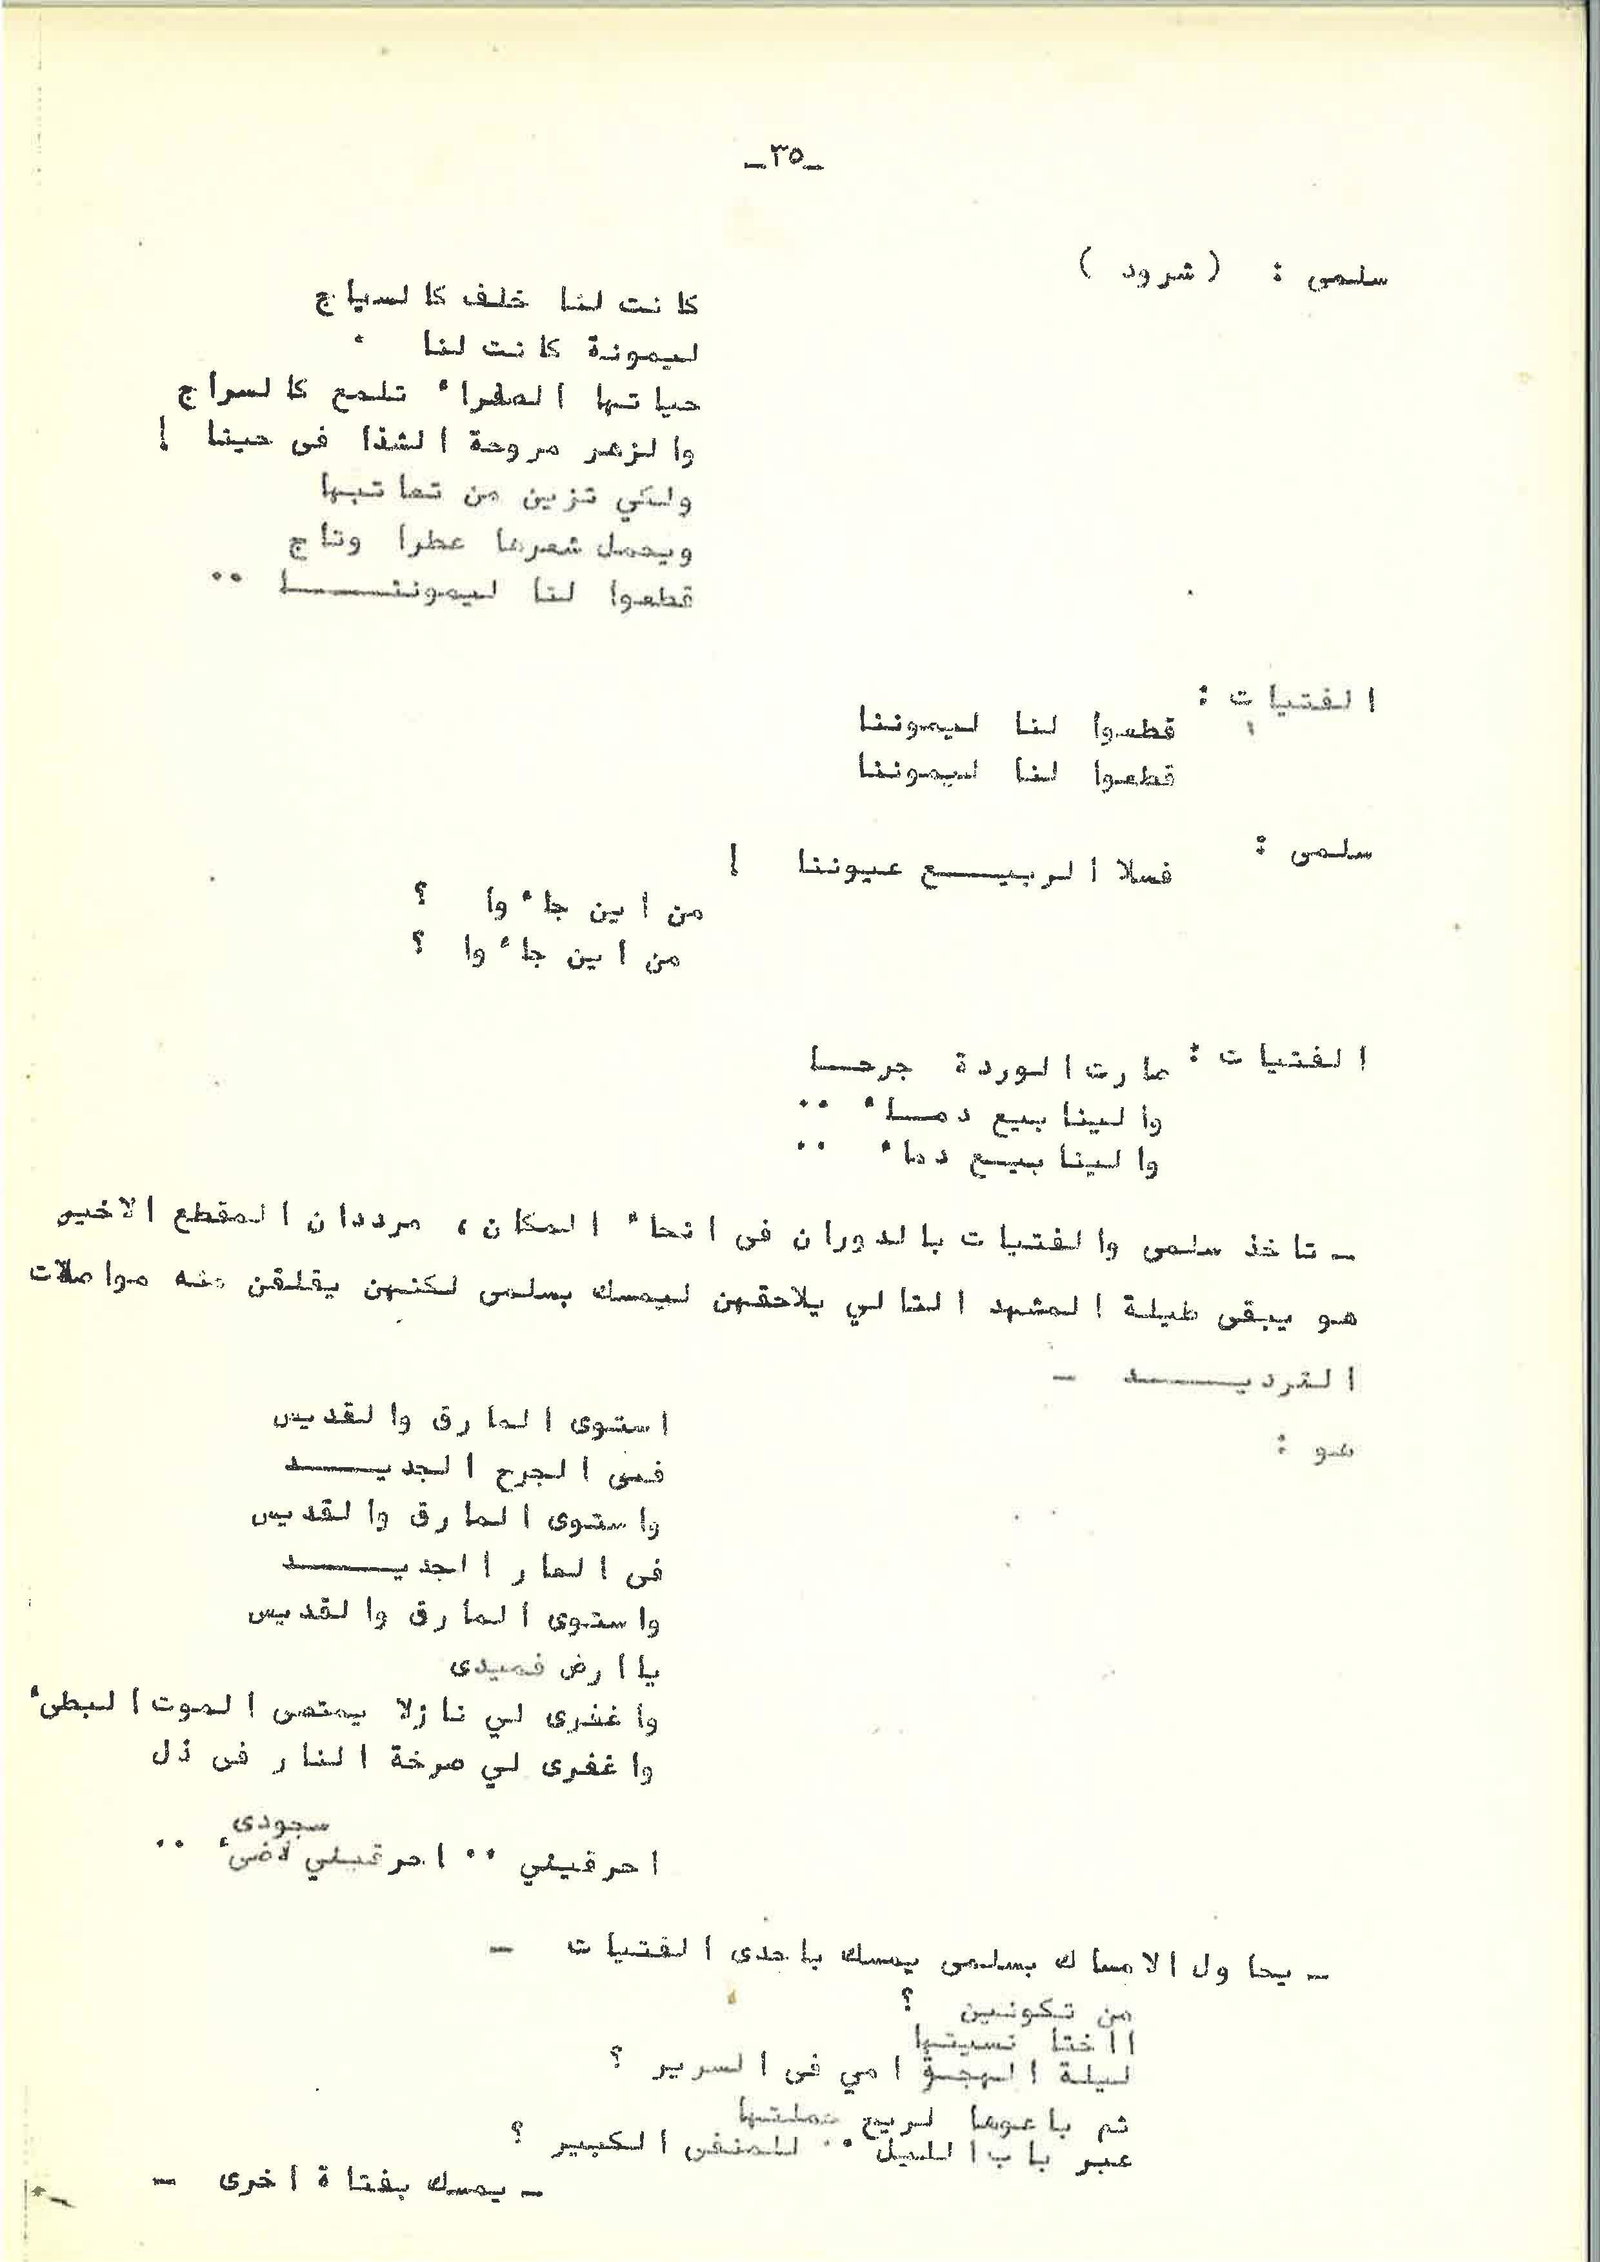 _٣٥_
سلمى : (شرود )
كانت لنا خلف كالسياج
ليمونة كانت لنا
حياتها الصفراء تلمع كالسراج
والزهر مروحة الشذا فى حينا !
ولكي تزين من تعاتبها
ويحمل شعرها عطرا وتاج
قطعوا لنا ليموننـــــا ..
الفتيات :
قطعوا لنا ليموننا
قطعوا لنا ليموننا
سلمى :
فسلا الربيـــع عيوننا !
من اين جاءوا ؟
من اين جاءوا ؟
الفتيات : صارت الوردة جرحــا
والينابيع دمــاء ..
والينابيع دماء ..
_ تاخذ سلمى والفتيات بالدوران فى انحاء المكان، مرددان المقطع الاخير
هو يبقى طيلة المشهد التالي يلاحقهن ليمسك بسلمى لكنهن يفلقن منه مواصلات
الترديـــــد _
هو :
استوى المارق والقديس
فى الجرح الجديـــــد
واستوى المارق والقديس
فى العار الجديـــــد
واستوى المارق والقديس
ياارض فميدى
واغفرى لي نازلا يمتص الموت البطىء
واغفرى لي صرخة النار فى ذل
سجودى
احرقيني .. احرقيني لاضىء ..
_ يحاول الامساك بسلمى يمسك باحدى الفتيات _
من تكونين ؟
ااختا نسيتها
ليلة الهجرة امي فى السرير ؟
ثم باعوها لريح حملتها
عبر باب الليل .. للمنفى الكبير ؟
_ يمسك بفتاة اخرى _